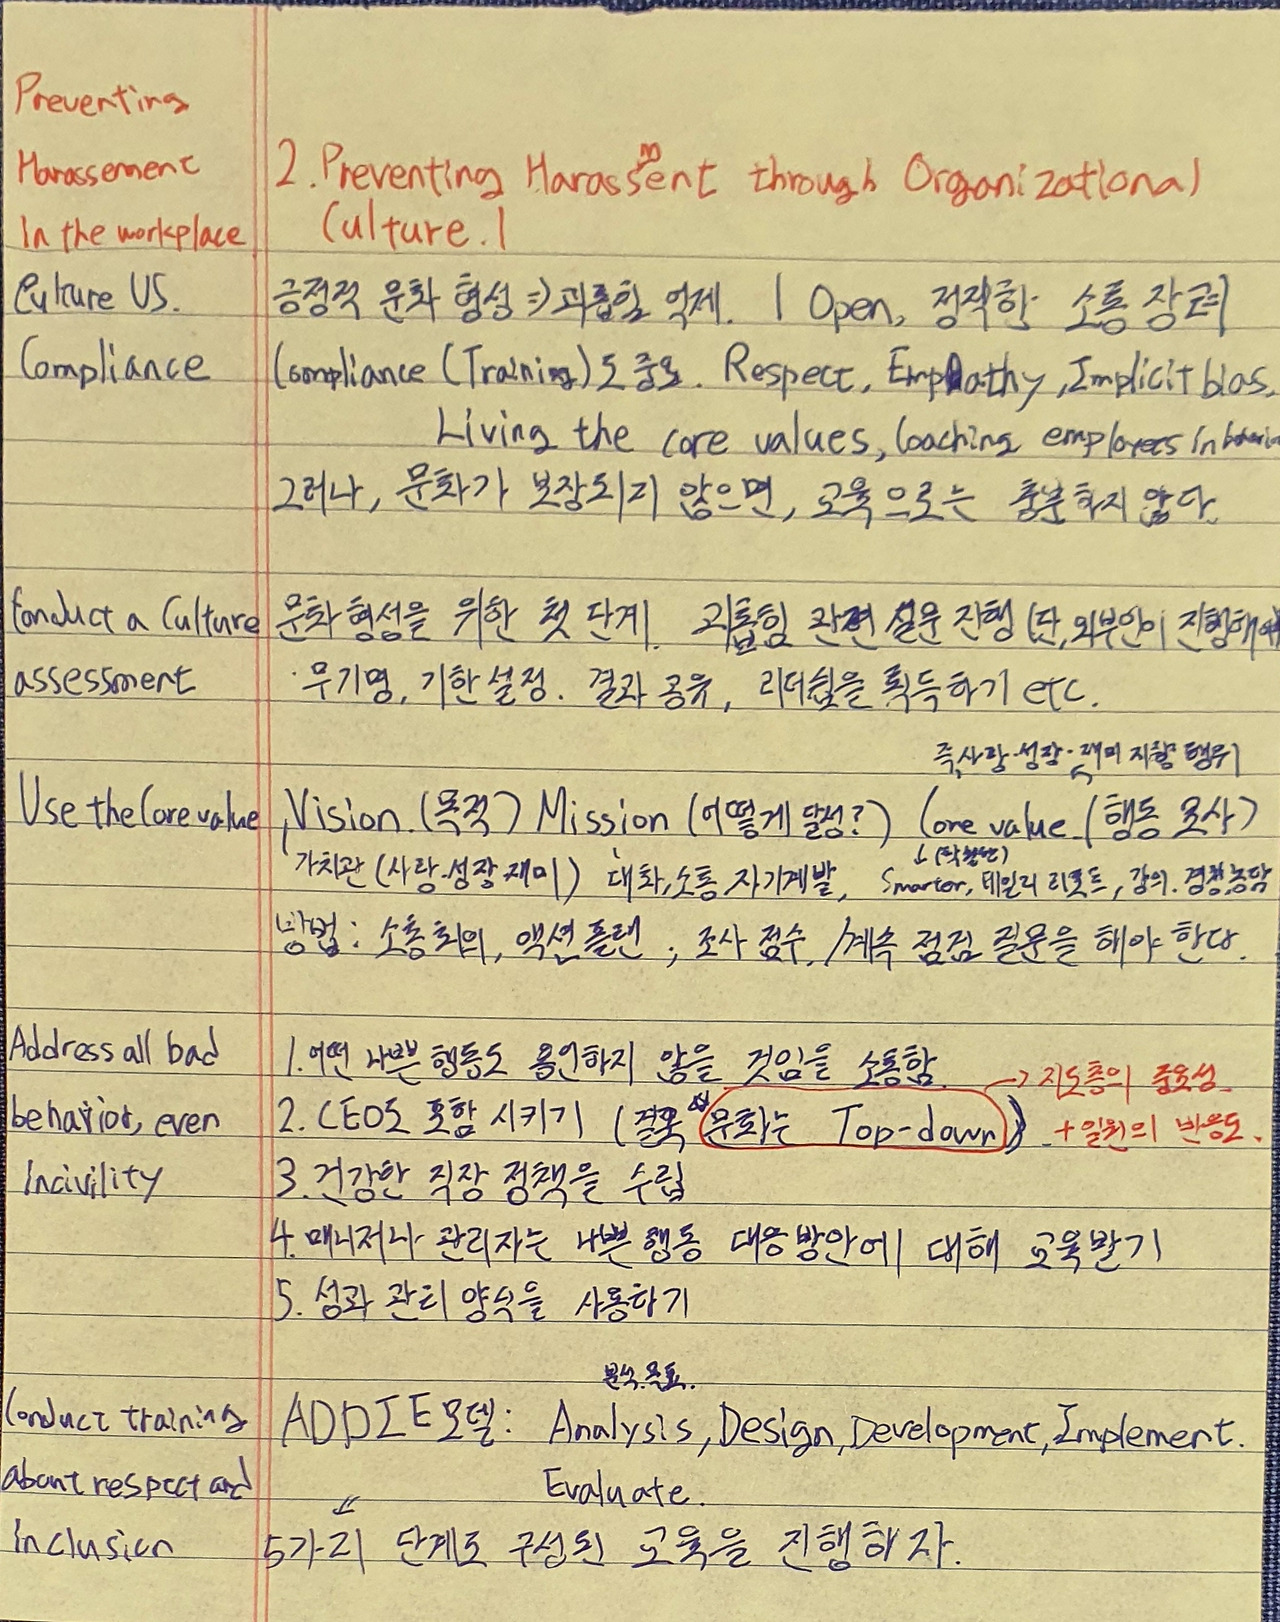 Preventing
Harassement
In the workplace
2. Preventing Harassment through Organizational
Culture. 1
Culture VS.
Compliance
긍정적 문화 형성 => 괴롭힘 억제. | Open, 정직한 소통 장려
Compliance (Training)도 중요. Respect, Empathy, Implicit bias,
Living the core values, Coaching employees in
그러나, 문화가 보장되지 않으면, 교육으로는 충분하지 않다.
Conduct a Culture
assessment
문화 형성을 위한 첫 단계. 괴롭힘 관련 설문 진행 (단, 외부인이 진행해야
· 무기명, 기한 설정. 결과 공유, 리더쉽을 획득하기 etc.
즉, 사랑·성장·재미 지향 행위
Use the Core value
, Vision. (목적) Mission (어떻게 달성?) Core value. (행동 묘사)
가치관 (사랑·성장·재미) 대화, 소통, 자기계발, Smarter, 데일리 리포트, 강의.
방법: 소통 회의, 액션 플랜 ; 조사 점수. / 계속 점검 질문을 해야 한다.
Address all bad
behavior, even
Incivility
1. 어떤 나쁜 행동도 용인하지 않을 것임을 소통함.
→ 지도층의 중요성.
2. CEO도 포함 시키기 (결국 문화는 Top-down)
+ 일원의 반응도.
3. 건강한 직장 정책을 수립
4. 매니저나 관리자는 나쁜 행동 대응방안에 대해 교육받기
5. 성과 관리 양식을 사용하기
분석.목표.
Conduct training
about respect and
Inclusion
ADDIE모델: Analysis, Design, Development, Implement.
Evaluate.
5가지 단계로 구성된 교육을 진행하자.